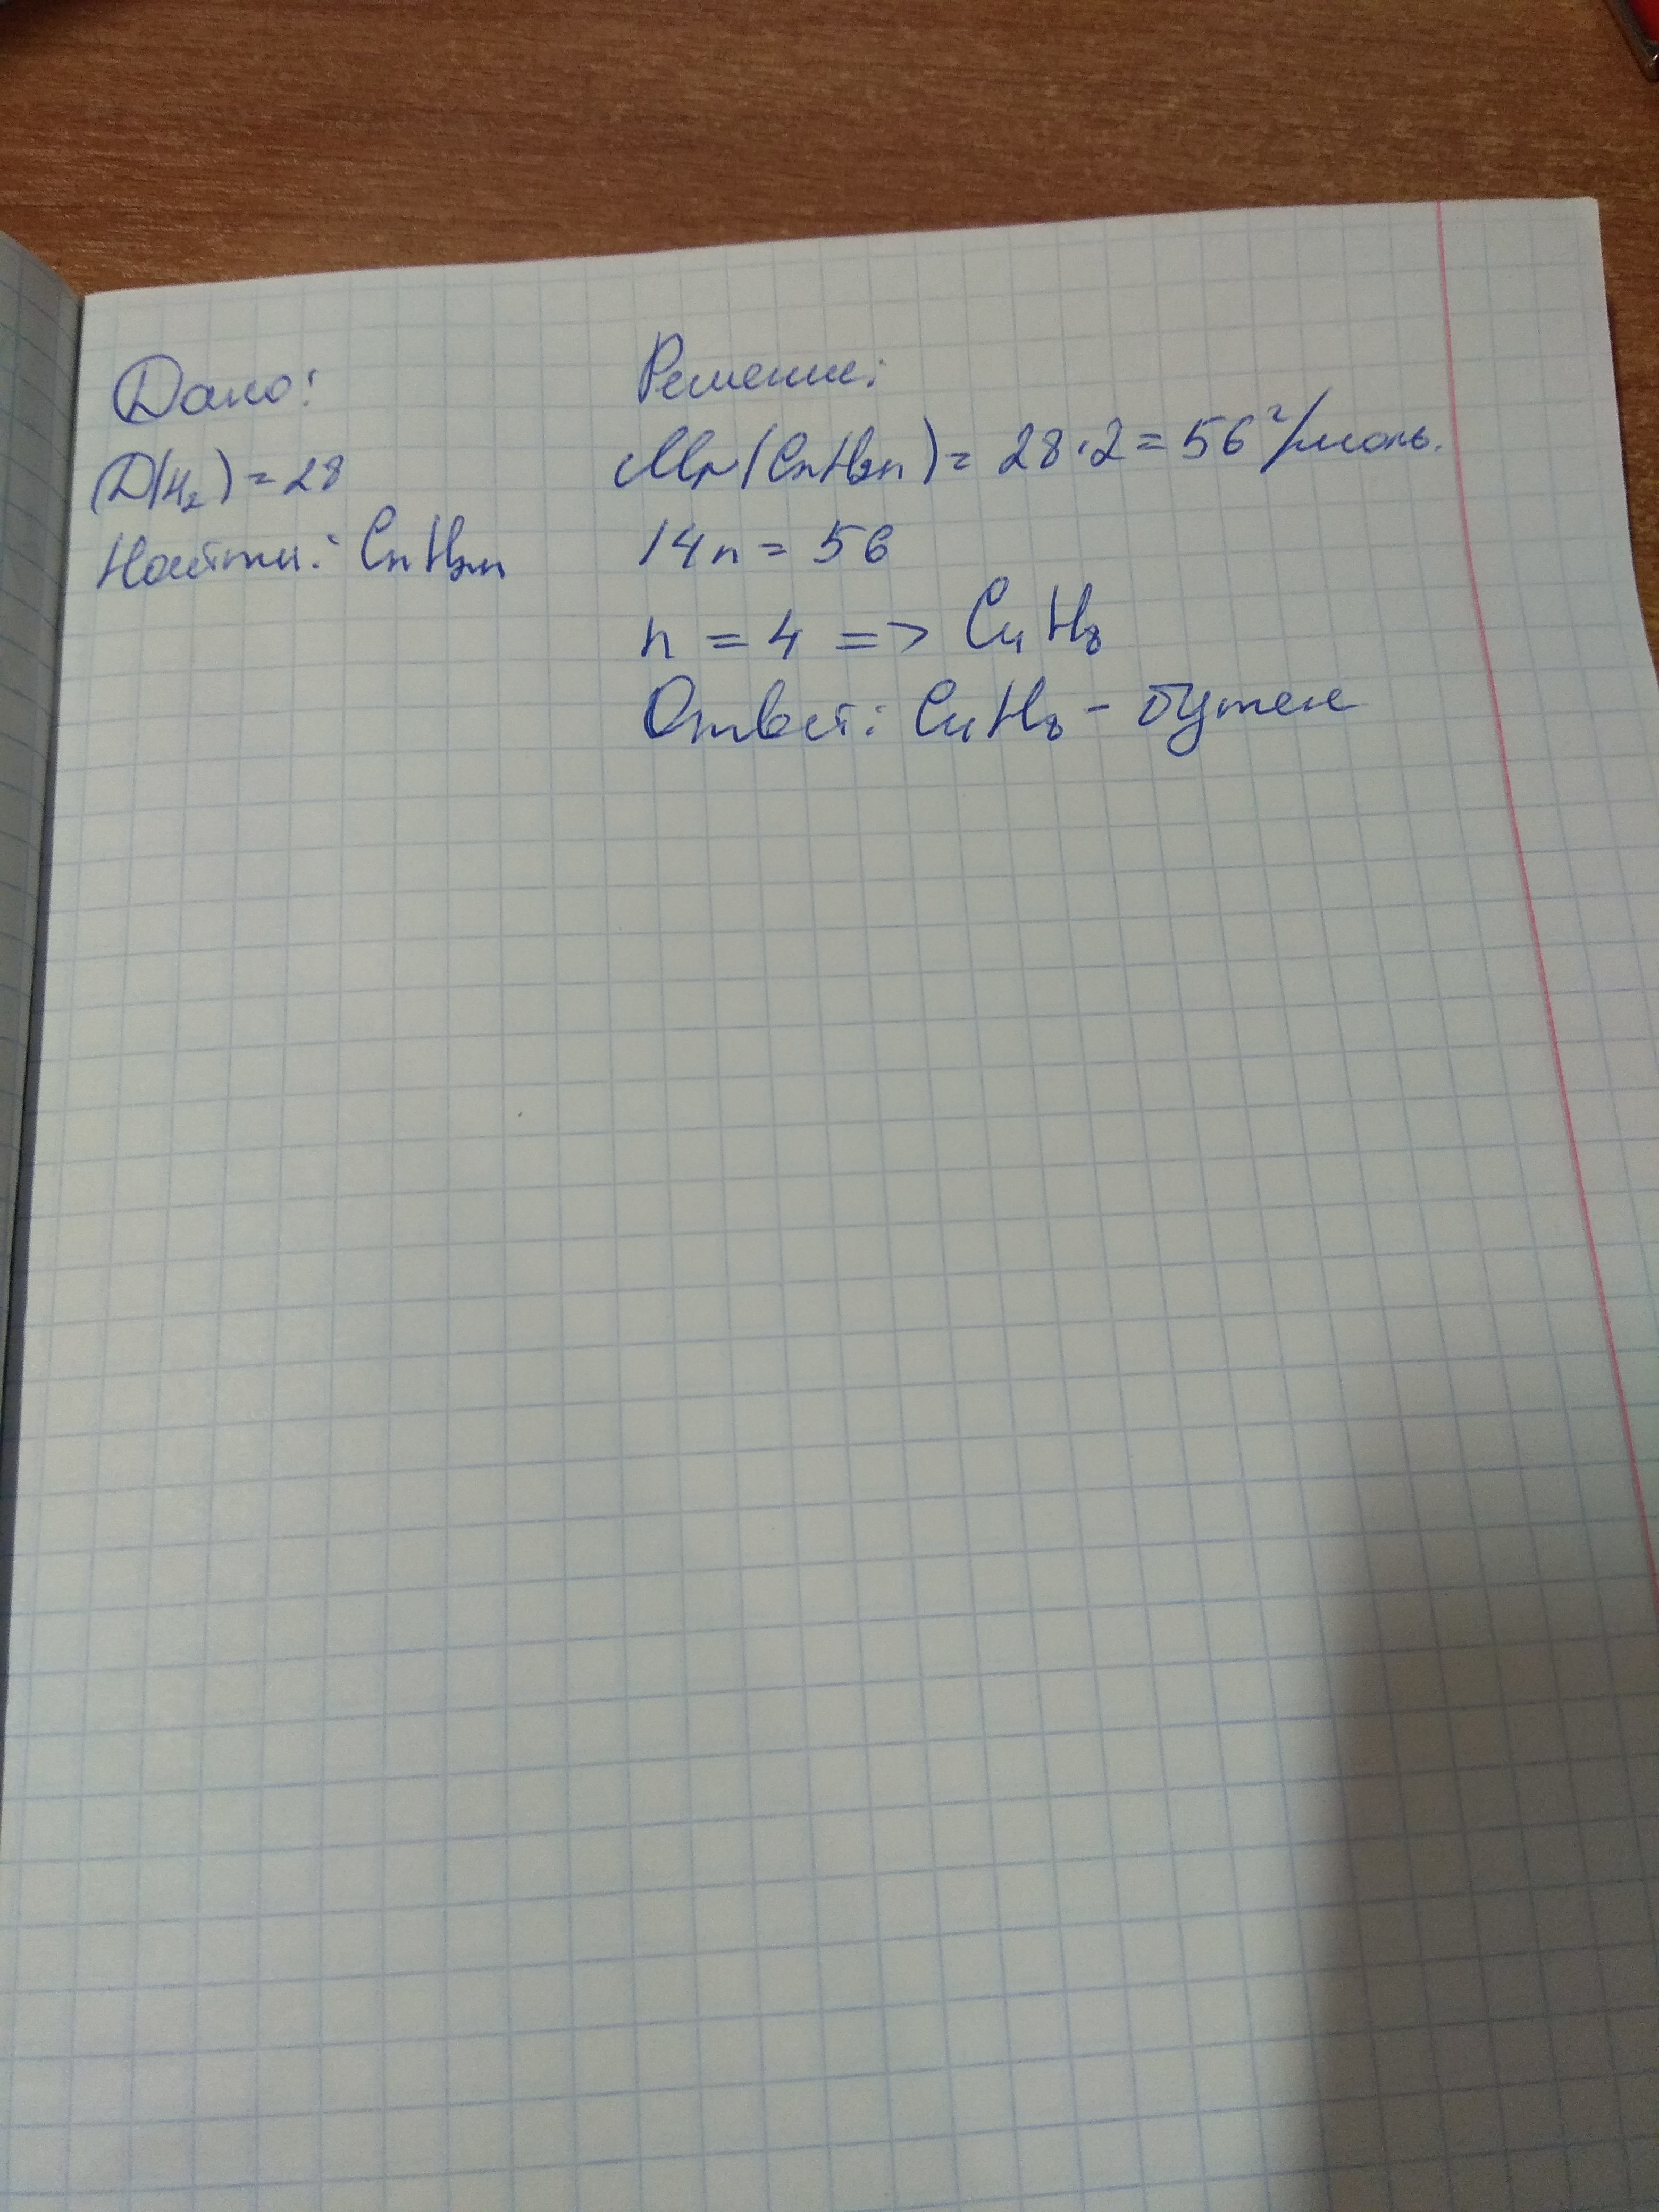 Дано:
D(H₂) = 28
Найти: CnH2n
Решение:
Mr(CnH2n) = 28·2 = 56 г/моль.
14n = 56
n = 4 => C₄H₈
Ответ: C₄H₈ - бутен